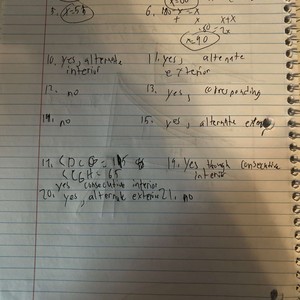 5. x=55 6. 180-x=x
+x x+x
180=2x
x=90
10. yes, alternate interior 11. yes, alternate exterior
12. no 13. yes, corresponding
14. no 15. yes, alternate
17. 19. yes though consecutive interior
yes consecutive interior
20. yes, alternate exterior 21. no